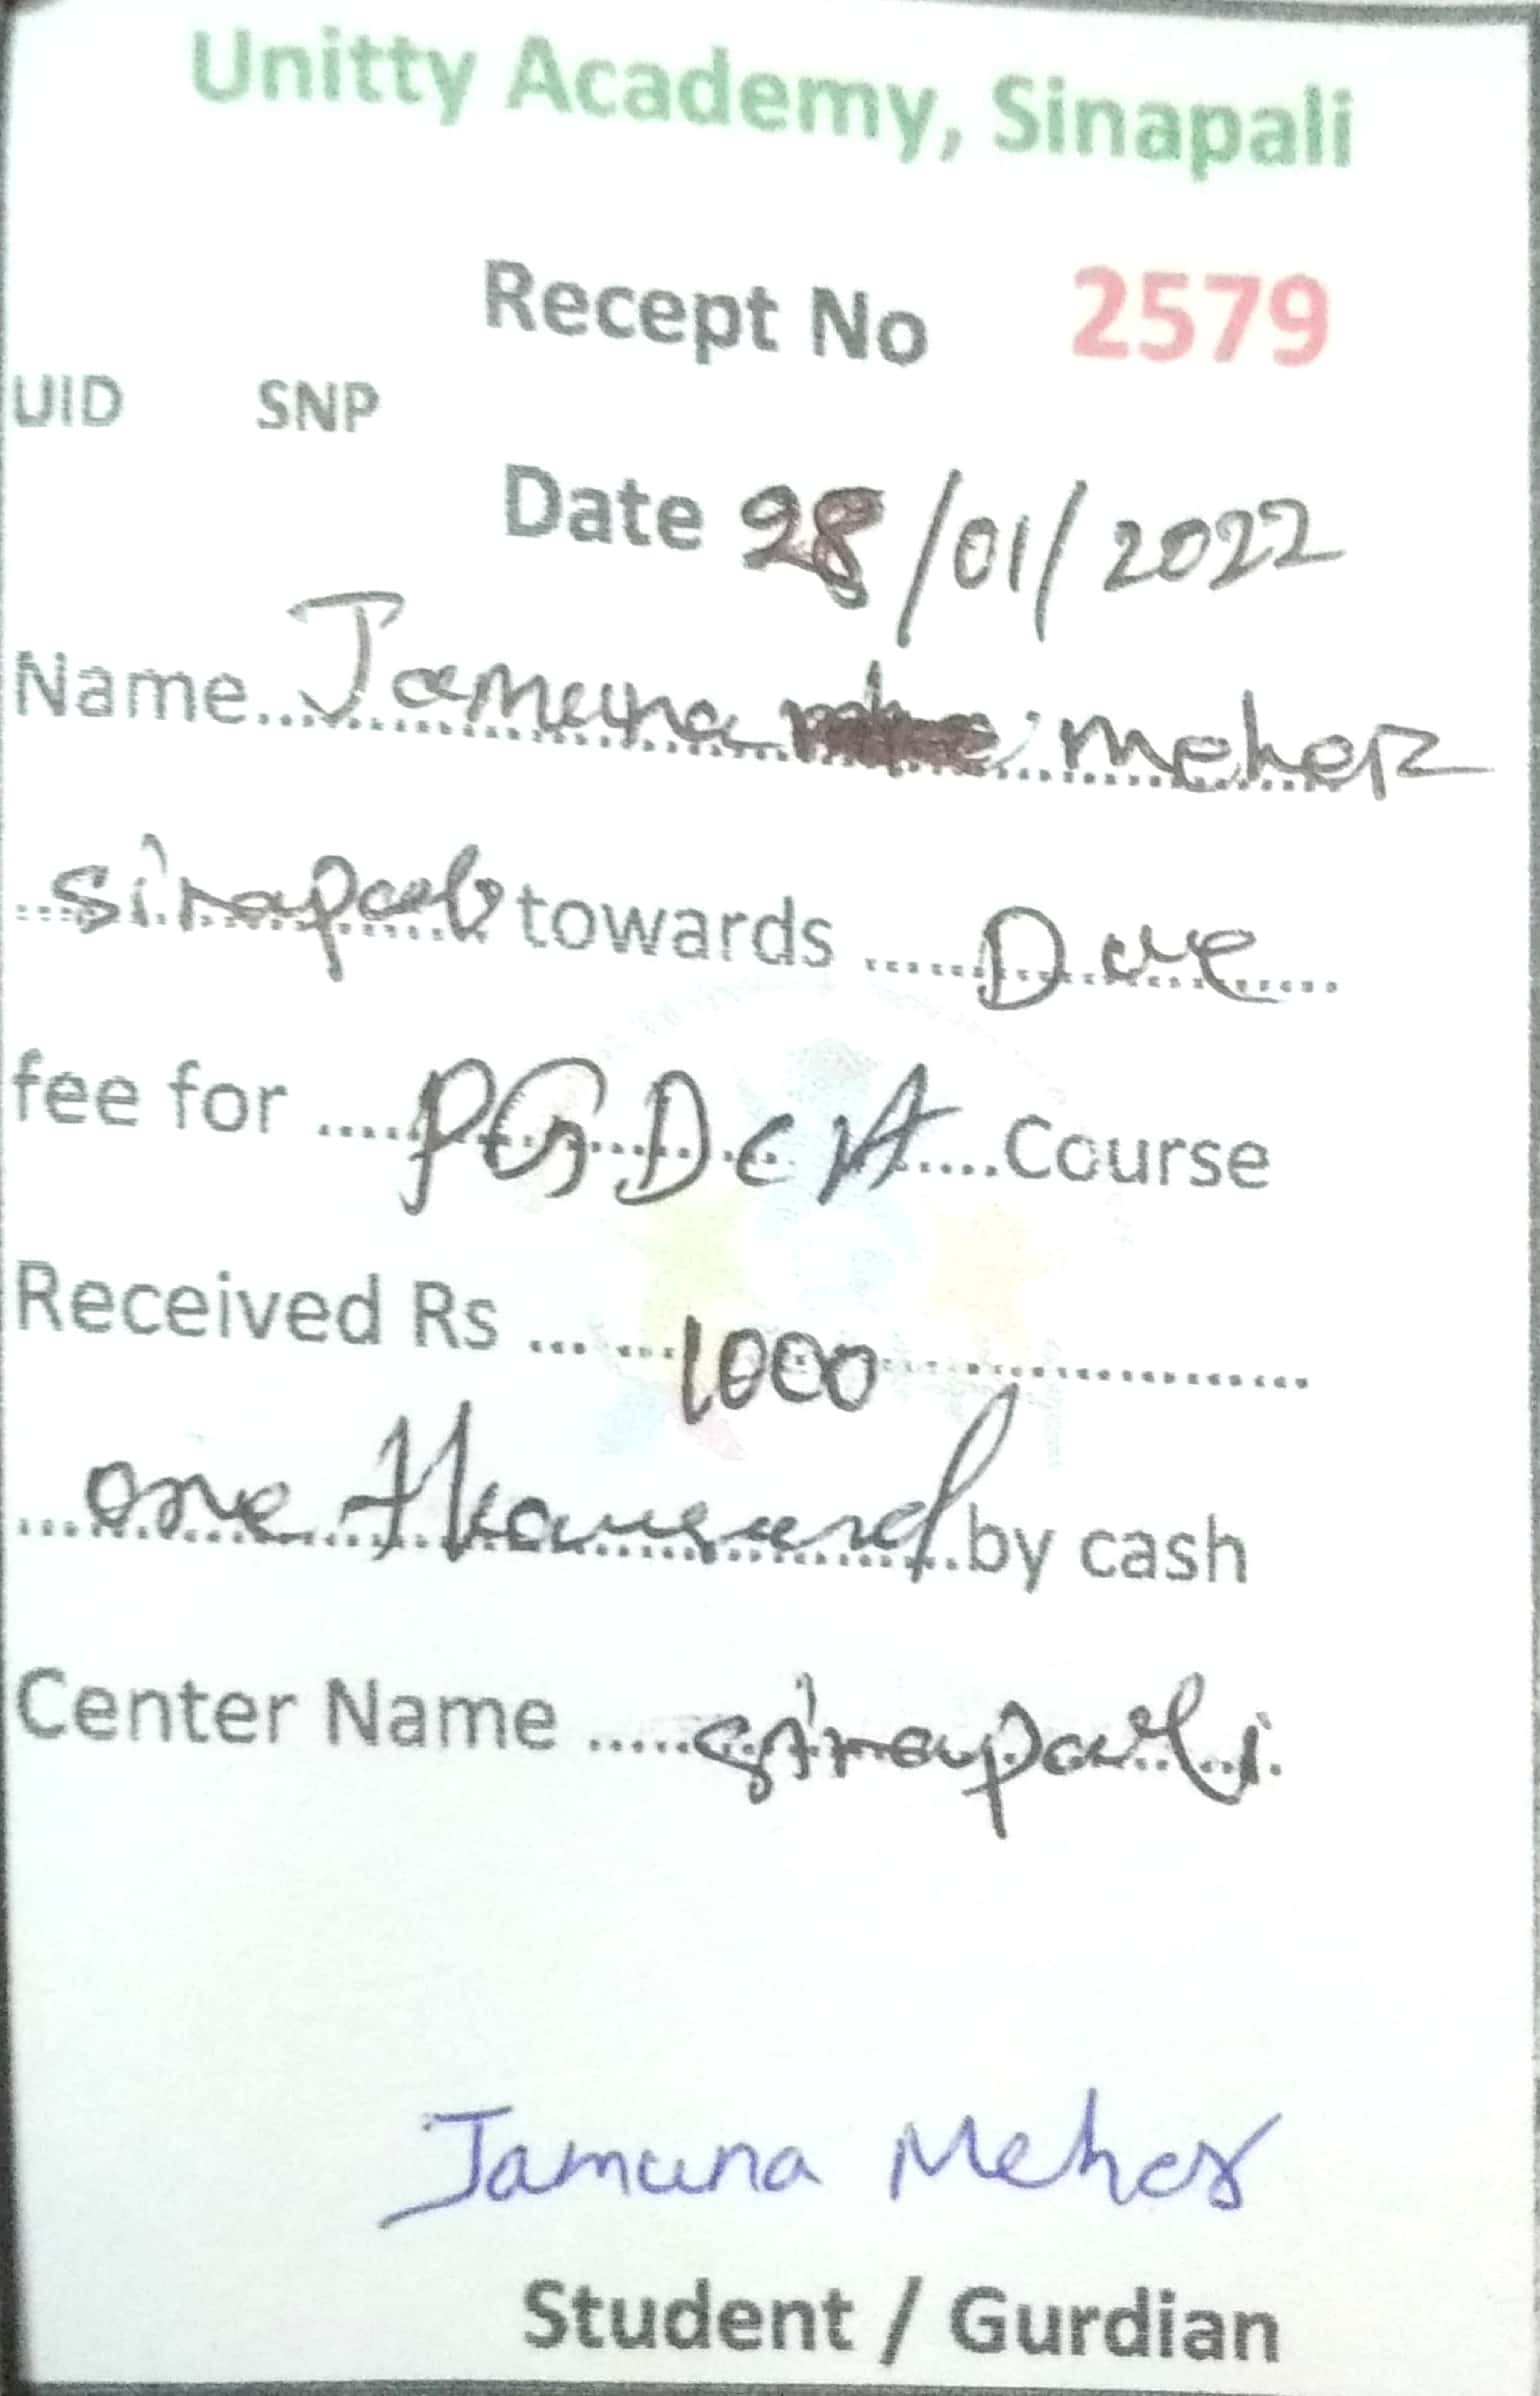 Unitty Academy, Sinapali
Recept No 2579
UID SNP
Date 28/01/2022
Name Jamuna Meher
Sinapali towards Due
fee for PGDCA Course
Received Rs 1000
one thousand by cash
Center Name Sinapali
Jamuna Meher
Student / Gurdian